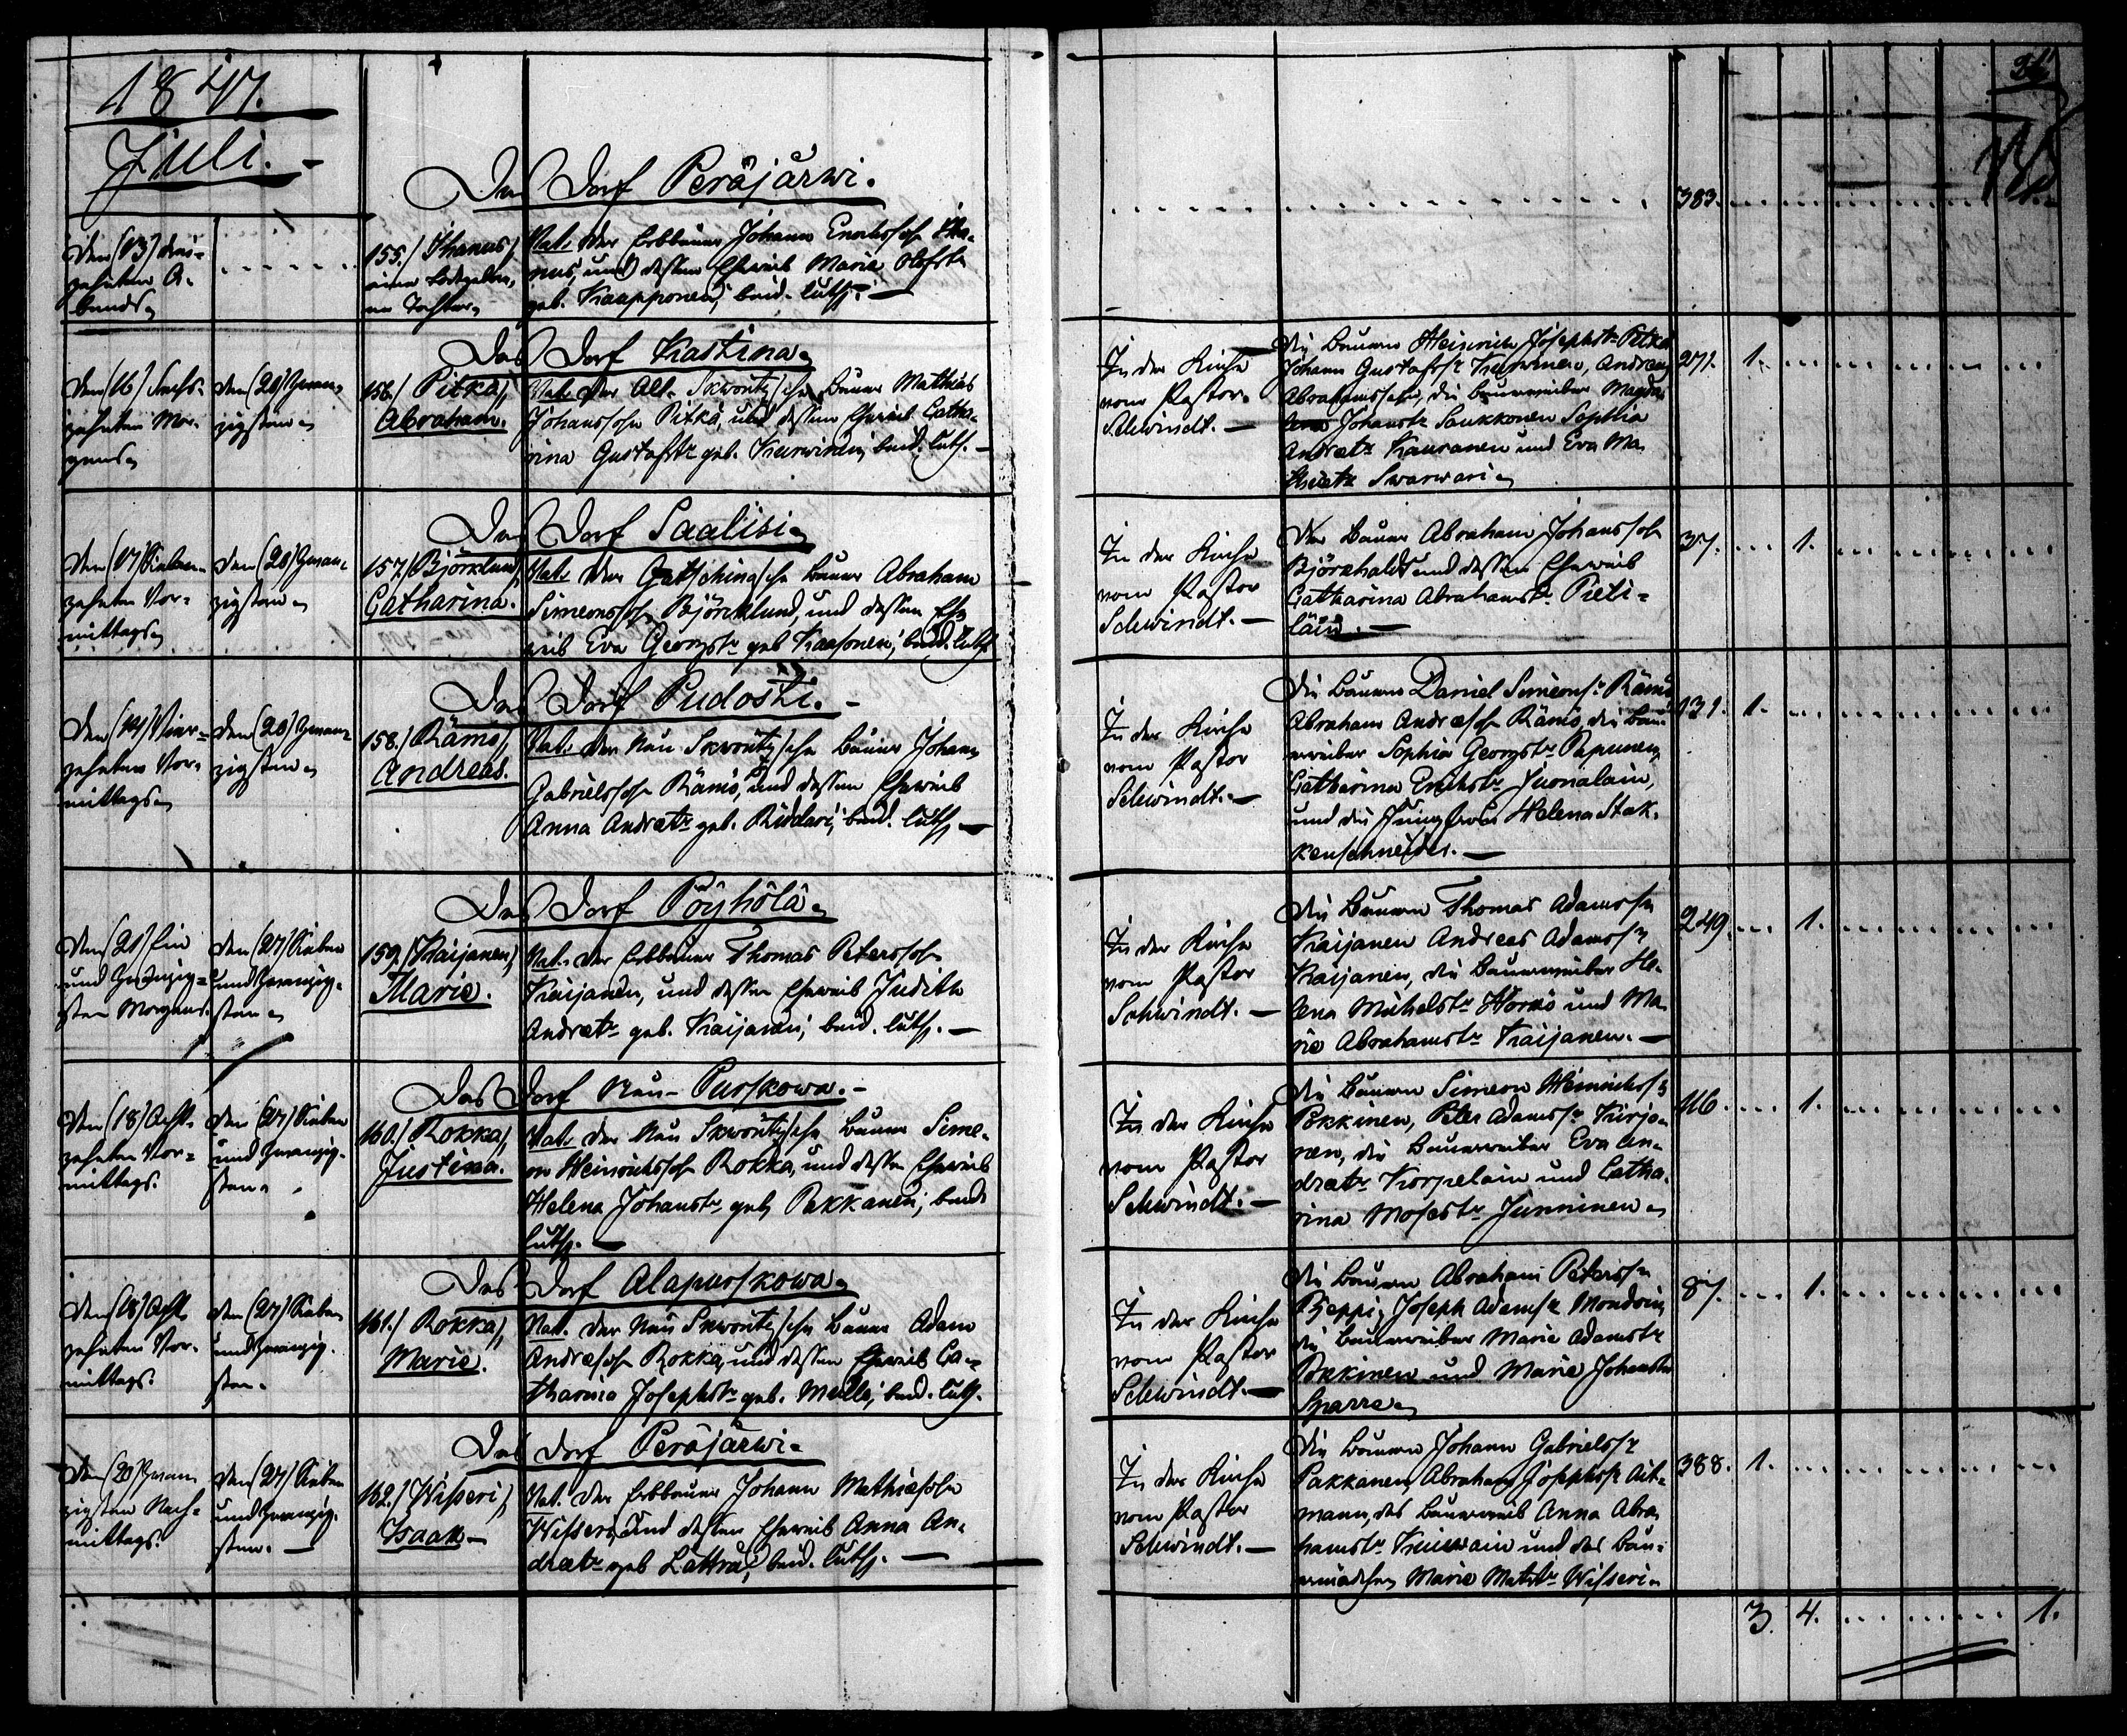 1847.
Juli.
Das Dorf Peräjärwi.
Den (13) drei-
zehnten A-
bends
155./ Ihanus,
eine todtgebor-
ne Tochter
Vat. der Erbbauer Johann Enochssohn Iha-
nus, und dessen Eheweib Maria Olofstr
geb. Kaapponen, beid. luth. —
383.
Das Dorf Kastina
Den (16) Sechs-
zehnten Mor-
gens
Den (20) Zwan-
zigsten
156./ Pitkä,
Abraham.
Vat. der Alt- Skworitzsche Bauer Mathias
Johanssohn Pitkä, und dessen Eheweib Catha-
rina Gustafstr geb. beid. luth. —
In der Kirche
vom Pastor
Schwindt. —
Die Bauern Heinrich Josephss. Pitkä
Johann Gustafss. Andreas
Abrahamssohn, die Bauerweiber Magda-
lena Johanstr Saukkonen Sophia
Andreätr Kauranen und Eva Ma-
thiätr Swarwari
271. 1.
Das Dorf Saalisi
Den (17) Sieben-
zehnten Vor-
mittags
Den (20) Zwan-
zigsten
157./ Björklund,
Catharina.
Vat. der Gatschinasche Bauer Abraham
Simeonssohn Björklund, und dessen Ehe-
weib Eva Georgstr geb. Kaasonen, beid. luth.
In der Kirche
vom Pastor
Schwindt. —
Der Bauer Abraham Johanssohn
und dessen Eheweib
Catharina Abrahamstr Pieti-
läin. —
37. 1.
Das Dorf Pudosti. —
Den (14) Vier-
zehnten Vor-
mittags
Den (20) Zwan-
zigsten
158./ Rämö,
Andreas.
Vat. der Neu Skworitzsche Bauer Johann
Gabrielssohn Rämö, und dessen Eheweib
Anna Andreätr geb. Riddari, beid. luth. —
In der Kirche
vom Pastor
Schwindt. —
Die Bauern Daniel Simeonss. Rämö
Abraham Andreässohn Rämö, die Bau-
erweiber Sophia Georgstr Papunen,
Catharina Enochstr Juonalain,
und die Jungfrau Helena Stak-
kenschneider. —
131. 1.
Das Dorf Pöyhölä
Den (21) Ein
und Zwanzig-
sten Morgens.
Den (27) Sieben
und Zwanzig-
sten
159./ Kaijanen,
Marie.
Vat. der Erbbauer Thomas Peterssohn
Kaijanen, und dessen Eheweib Judith
Andreätr geb. Kaijanen, beid. luth. —
In der Kirche
vom Pastor
Schwindt. —
Die Bauern Thomas Adamssohn
Kaijanen Andreas Adamss.
Kaijanen, die Bauerweiber He-
lena Michelstr und Ma-
rie Abrahamstr Kaijanen. —
249. 1.
Das Dorf Neu-Purskowa. —
Den (18) Acht-
zehnten Vor-
mittags.
Den (27) Sieben
und Zwanzig-
sten.
160./ Rokka,
Justina.
Vat. der Neu Skworitzsche Bauer Sime-
on Heinrichssohn Rokka, und dessen Eheweib
Helena Johanstr geb. Pakkanen, beid.
luth. —
In der Kirche
vom Pastor
Schwindt. —
Die Bauern Simeon Heinrichss.
Pokkinen, Peter Adamss. Kirjo-
nen, die Bauerweiber Eva An-
dreätr Korpelain und Catha-
rina Mosestr Junninen
116. 1.
Das Dorf Alapurskowa
Den (18) Acht-
zehnten Vor-
mittags.
Den (27) Sieben
und Zwanzig-
sten.
161./ Rokka,
Marie.
Vat. der Neu Skworitzsche Bauer Adam
Andreässohn Rokka, und dessen Eheweib Ca-
tharina Josephstr geb. beid. luth.
In der Kirche
vom Pastor
Schwindt. —
Die Bauern Abraham Peterss.
Joseph Adamss.
die Bauerweiber Marie Adamstr
Pokkinen und Marie Johanstr
Sparre
87. 1.
Das Dorf Peräjärwi
Den (20) Zwan-
zigsten Nach-
mittags.
Den (27) Sieben
und Zwanzig-
sten. —
162./ Wisseri,
Isaak —
Vat. der Erbbauer Johann Mathiässohn
Wisseri, und dessen Eheweib Anna An-
dreätr geb. beid. luth. —
In der Kirche
vom Pastor
Schwindt. —
Die Bauern Johann Gabrielss.
Pakkanen, Abraham Josephss.
das Bauerweib Anna Abra-
hamstr und das Bau-
ermädchen Marie Mathtr Wisseri
388. 1.
3. 4. 1.